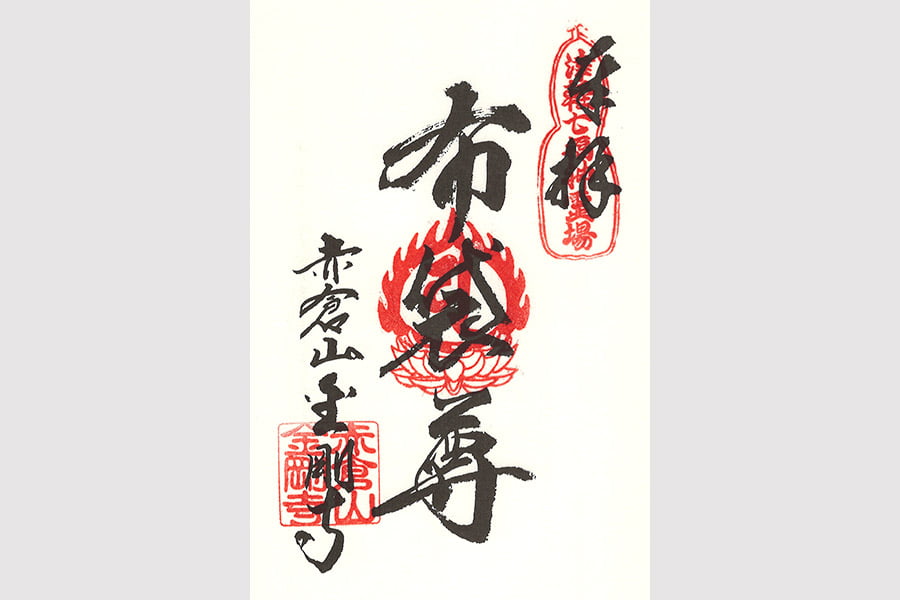 奉拝
津軽七福神霊場
布袋尊
赤倉山金剛寺
赤倉山
金剛寺